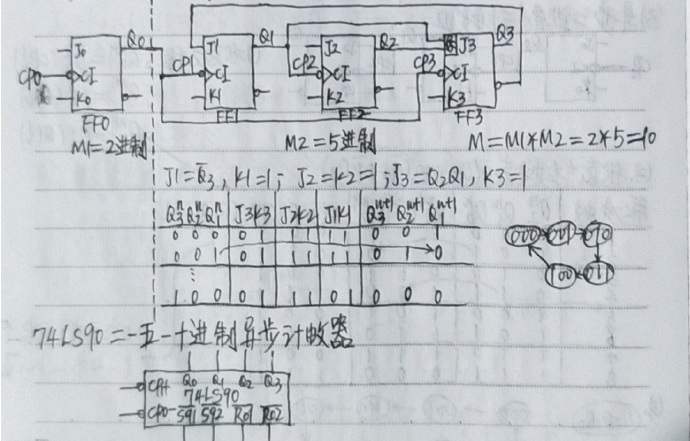 J0 Q0 J1 Q1 J2 Q2 J3 Q3
CP0 CI CP1 CI CP2 CI CP3 CI
K0 K1 K2 K3
FF0 FF1 FF2 FF3
M1=2进制 M2=5进制 M=M1*M2=2*5=10
J1=Q̄3, K1=1; J2=K2=1; J3=Q2Q1, K3=1
Q3ⁿ Q2ⁿ Q1ⁿ J3K3 J2K2 J1K1 Q3ⁿ⁺¹ Q2ⁿ⁺¹ Q1ⁿ⁺¹
0 0 0 0 1 1 1 1 1 0 0 1
0 0 1 0 1 1 1 1 1 0 1 0
⋮
1 0 0 0 1 1 1 0 1 0 0 0
000 001 010
100 011
74LS90=二-五-十进制异步计数器
Q0 Q1 Q2 Q3
74LS90
S91 S92 R01 R02